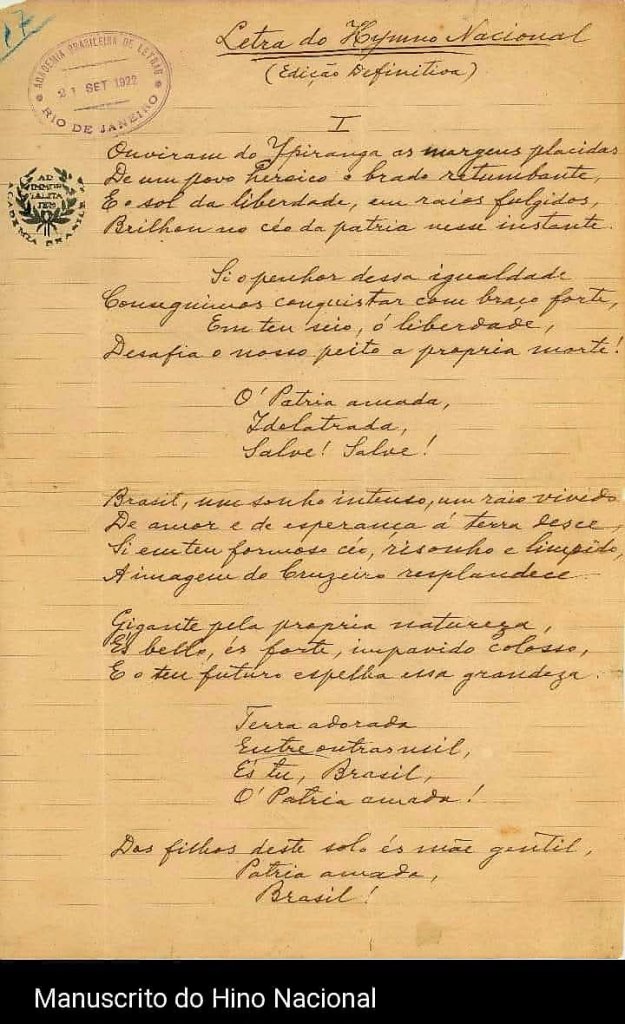 17
ACADEMIA BRASILEIRA DE LETRAS
21 SET 1922
RIO DE JANEIRO
AD IMMORTALITATEM
ACADEMIA BRASILE
Letra do Hymno Nacional
(Edição Definitiva)
I
Ouviram do Ypiranga as margens placidas
De um povo heroico o brado retumbante,
E o sol da liberdade, em raios fulgidos,
Brilhou no céo da patria nesse instante.
Si o penhor dessa igualdade
Conseguimos conquistar com braço forte,
Em teu seio, ó liberdade,
Desafia o nosso peito a propria morte!
O' Patria amada,
Idolatrada,
Salve! Salve!
Brasil, um sonho intenso, um raio vivido
De amor e de esperança á terra desce,
Si em teu formoso céo, risonho e limpido,
A imagem do Cruzeiro resplandece.
Gigante pela propria natureza,
És bello, és forte, impavido colosso,
E o teu futuro espelha essa grandeza.
Terra adorada
Entre outras mil,
És tu, Brasil,
O' Patria amada!
Dos filhos deste solo és mãe gentil,
Patria amada,
Brasil!
Manuscrito do Hino Nacional